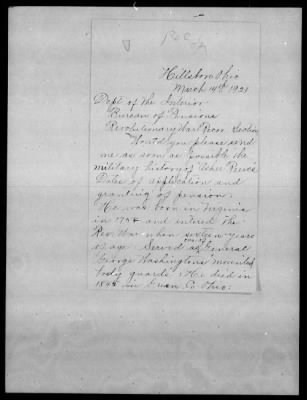 Hillsboro Ohio
March 14th 1921
Dept of the Interior
Bureau of Pensions
Revolutionary War Recor Section
Would you please send
me as soon as possible the
military history of
Dates of application and
granting of pension.
He was born in Virginia
in and entered the
Rev. War when sixteen years
of age. Served General
George Washingtons mounted
body guards. He died in
in Co Ohio.